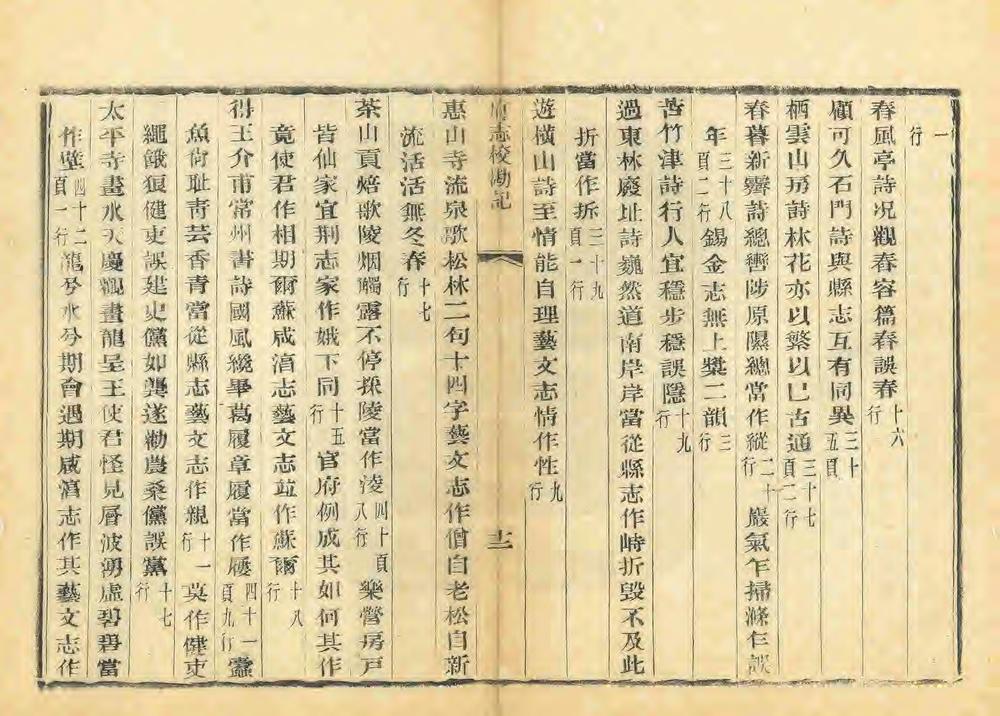 一行
春風亭詩况觀春容篇春誤春十六行
顧可久石門詩與縣志互有同異三十五頁
栖雲山房詩林花亦以繁以巳古通三十七頁二行
春暮新霽詩總轡陟原隰總當作縱二十行嚴氣乍掃滌乍誤
年三十八頁二行錫金志無上槳二韻三行
苦竹津詩行人宜穩步穩誤隱十九行
過東林廢址詩巍然道南岸岸當從縣志作峙折毀不及此
折當作拆三十九頁一行
遊橫山詩至情能自理藝文志情作性九行
府志校勘記 十二
惠山寺流泉歌松林二句十四字藝文志作僧自老松自新
流活活無冬春十七行
茶山貢焙歌陵烟觸露不停探陵當作淩四十頁八行樂營房戸
皆仙家宜荆志家作娥下同十五行官府例成其如何其作
竟使君作相期爾蘇咸淳志藝文志竝作蘇爾十八行
得王介甫常州書詩國風纔畢葛屨章履當作屨四十一頁九行蠹
魚何耻青芸香青當從縣志藝文志作親十一行莫作健吏
繩餓狼健吏誤建史儻如龔遂勸農桑儻誤黨十七行
太平寺畫水天慶觀畫龍呈王使君怪見層波湧虛碧碧當
作壁四十二頁一行龍兮水兮期會遇期咸淳志作其藝文志作